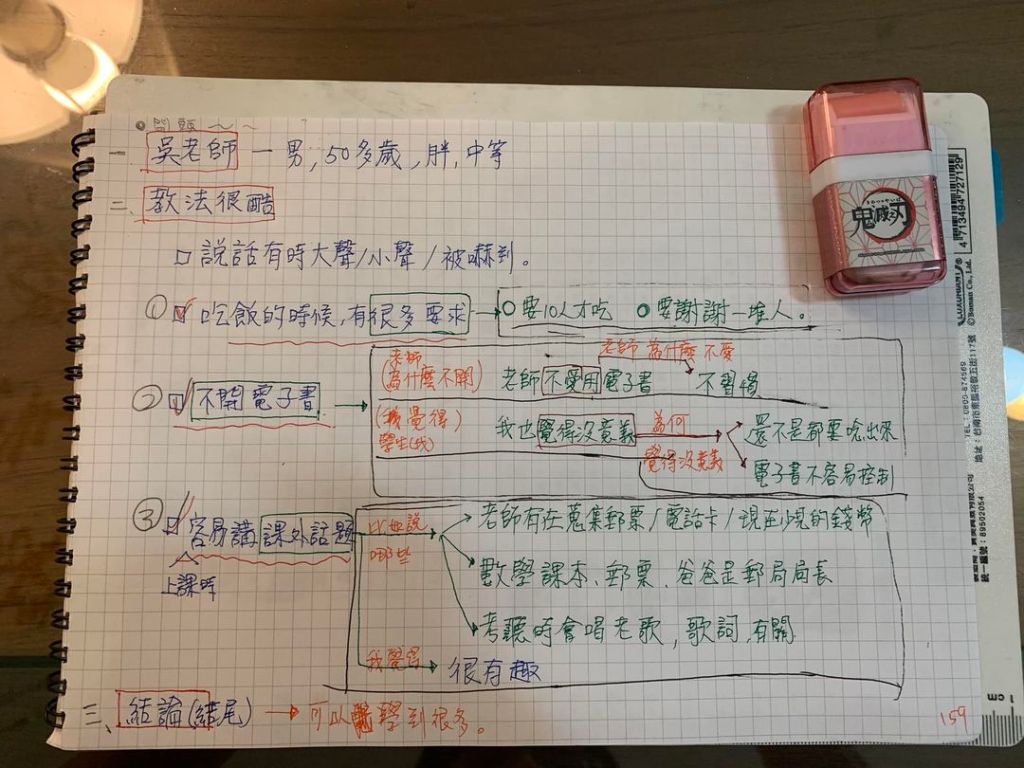 一 吳老師 — 男, 50多歲, 胖, 中等
二、教法很酷
□ 說話有時大聲/小聲/被嚇到。
① ☑ 吃飯的時候,有很多要求 → ○要10人才吃 ○要謝謝一堆人。
老師 為什麼 不愛
② ☑ 不開電子書 → 老師(為什麼不開) 老師不愛用電子書 不習慣
(我覺得) 學生(我) 我也覺得沒意義 為何 覺得沒意義
還不是都要唸出來
電子書不容易控制
③ ☑ 容易講課外話題
上課時
比如說 哪些
老師有在蒐集郵票/電話卡/現在少見的錢幣
數學課本、郵票、爸爸是郵局局長
考聽時會唱老歌,歌詞,有關
我覺得 → 很有趣
三、結論(結尾) → 可以學到很多。
159
鬼滅之刃
4 713494 727129
©Bonan Co., Ltd.
統一編號:89502054
CM